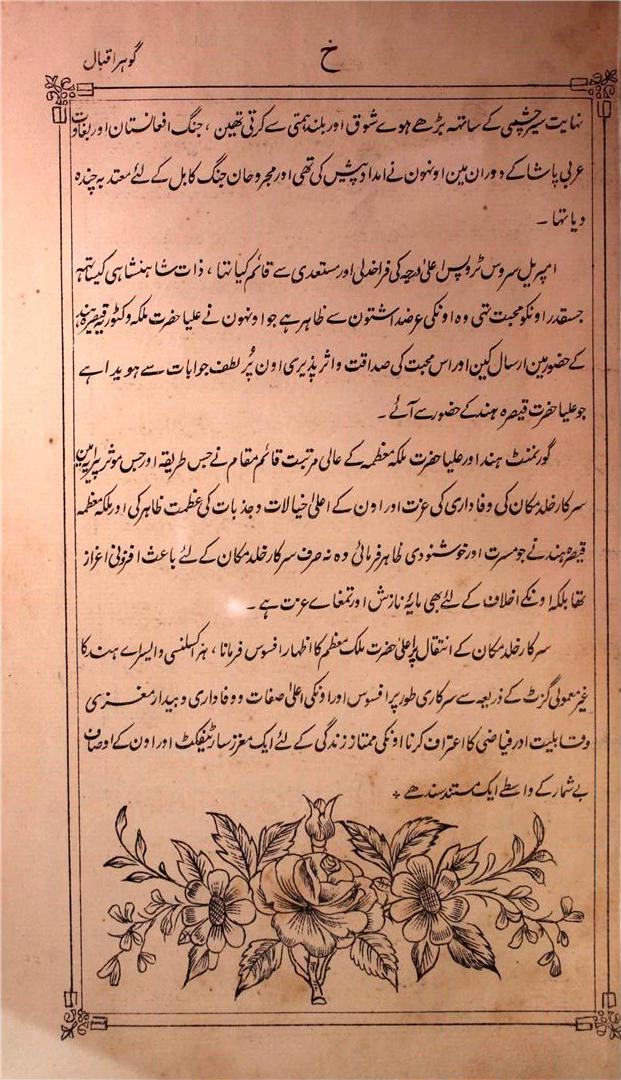 گوہر اقبال
خ
نہایت سیر چشمی کے ساتھہ بڑھے ہوے شوق اور بلند ہمتی سے کرتی تھین ، جنگ افغانستان اور بغاوت
عربی پاشا کے دوران مین اونہون نے امداد پیش کی تھی اور مجروحان جنگ کابل کے لئے معتد بہ چندہ
دیا تہا ۔
امپریل سروس ٹروپس اعلیٰ درجہ کی فراخدلی اور مستعدی سے قائم کیا تہا ، ذات شاہنشاہی کیساتھہ
جسقدر اونکو محبت تہی وہ اونکی عرضداشتون سے ظاہر ہے جو اونہون نے علیا حضرت ملکہ وکٹوریہ قیصرہ ہند
کے حضور مین ارسال کین اور اس محبت کی صداقت و اثر پذیری اون پُر لطف جوابات سے ہویدا ہے
جو علیا حضرت قیصرہ ہند کے حضور سے آئے ۔
گورنمنٹ ہند اور علیا حضرت ملکہ معظمہ کے عالی مرتبت قائم مقام نے جس طریقہ اور جس موثر پیرایہ مین
سرکار خلد مکان کی وفاداری کی عزت اور اون کے اعلیٰ خیالات و جذبات کی عظمت ظاہر کی اور ملکہ معظمہ
قیصرہ ہند نے جو مسرت اور خوشنودی ظاہر فرمائی وہ نہ صرف سرکار خلد مکان کے لئے باعث افزونی اعزاز
تھا بلکہ اونکے اخلاف کے لئے بھی مایۂ نازش اور تمغاے عزت ہے ۔
سرکار خلد مکان کے انتقال پر اعلیٰ حضرت ملک معظم کا اظہار افسوس فرمانا ، ہز اکسلنسی وایسراے ہند کا
غیر معمولی گزٹ کے ذریعہ سے سرکاری طور پر افسوس اور اونکی اعلیٰ صفات و وفاداری و بیدار مغزی
و قابلیت اور فیاضی کا اعتراف کرنا اونکی ممتاز زندگی کے لئے ایک معزز سارٹیفکٹ اور اون کے اوصاف
بے شمار کے واسطے ایک مستند سند ھے ٭